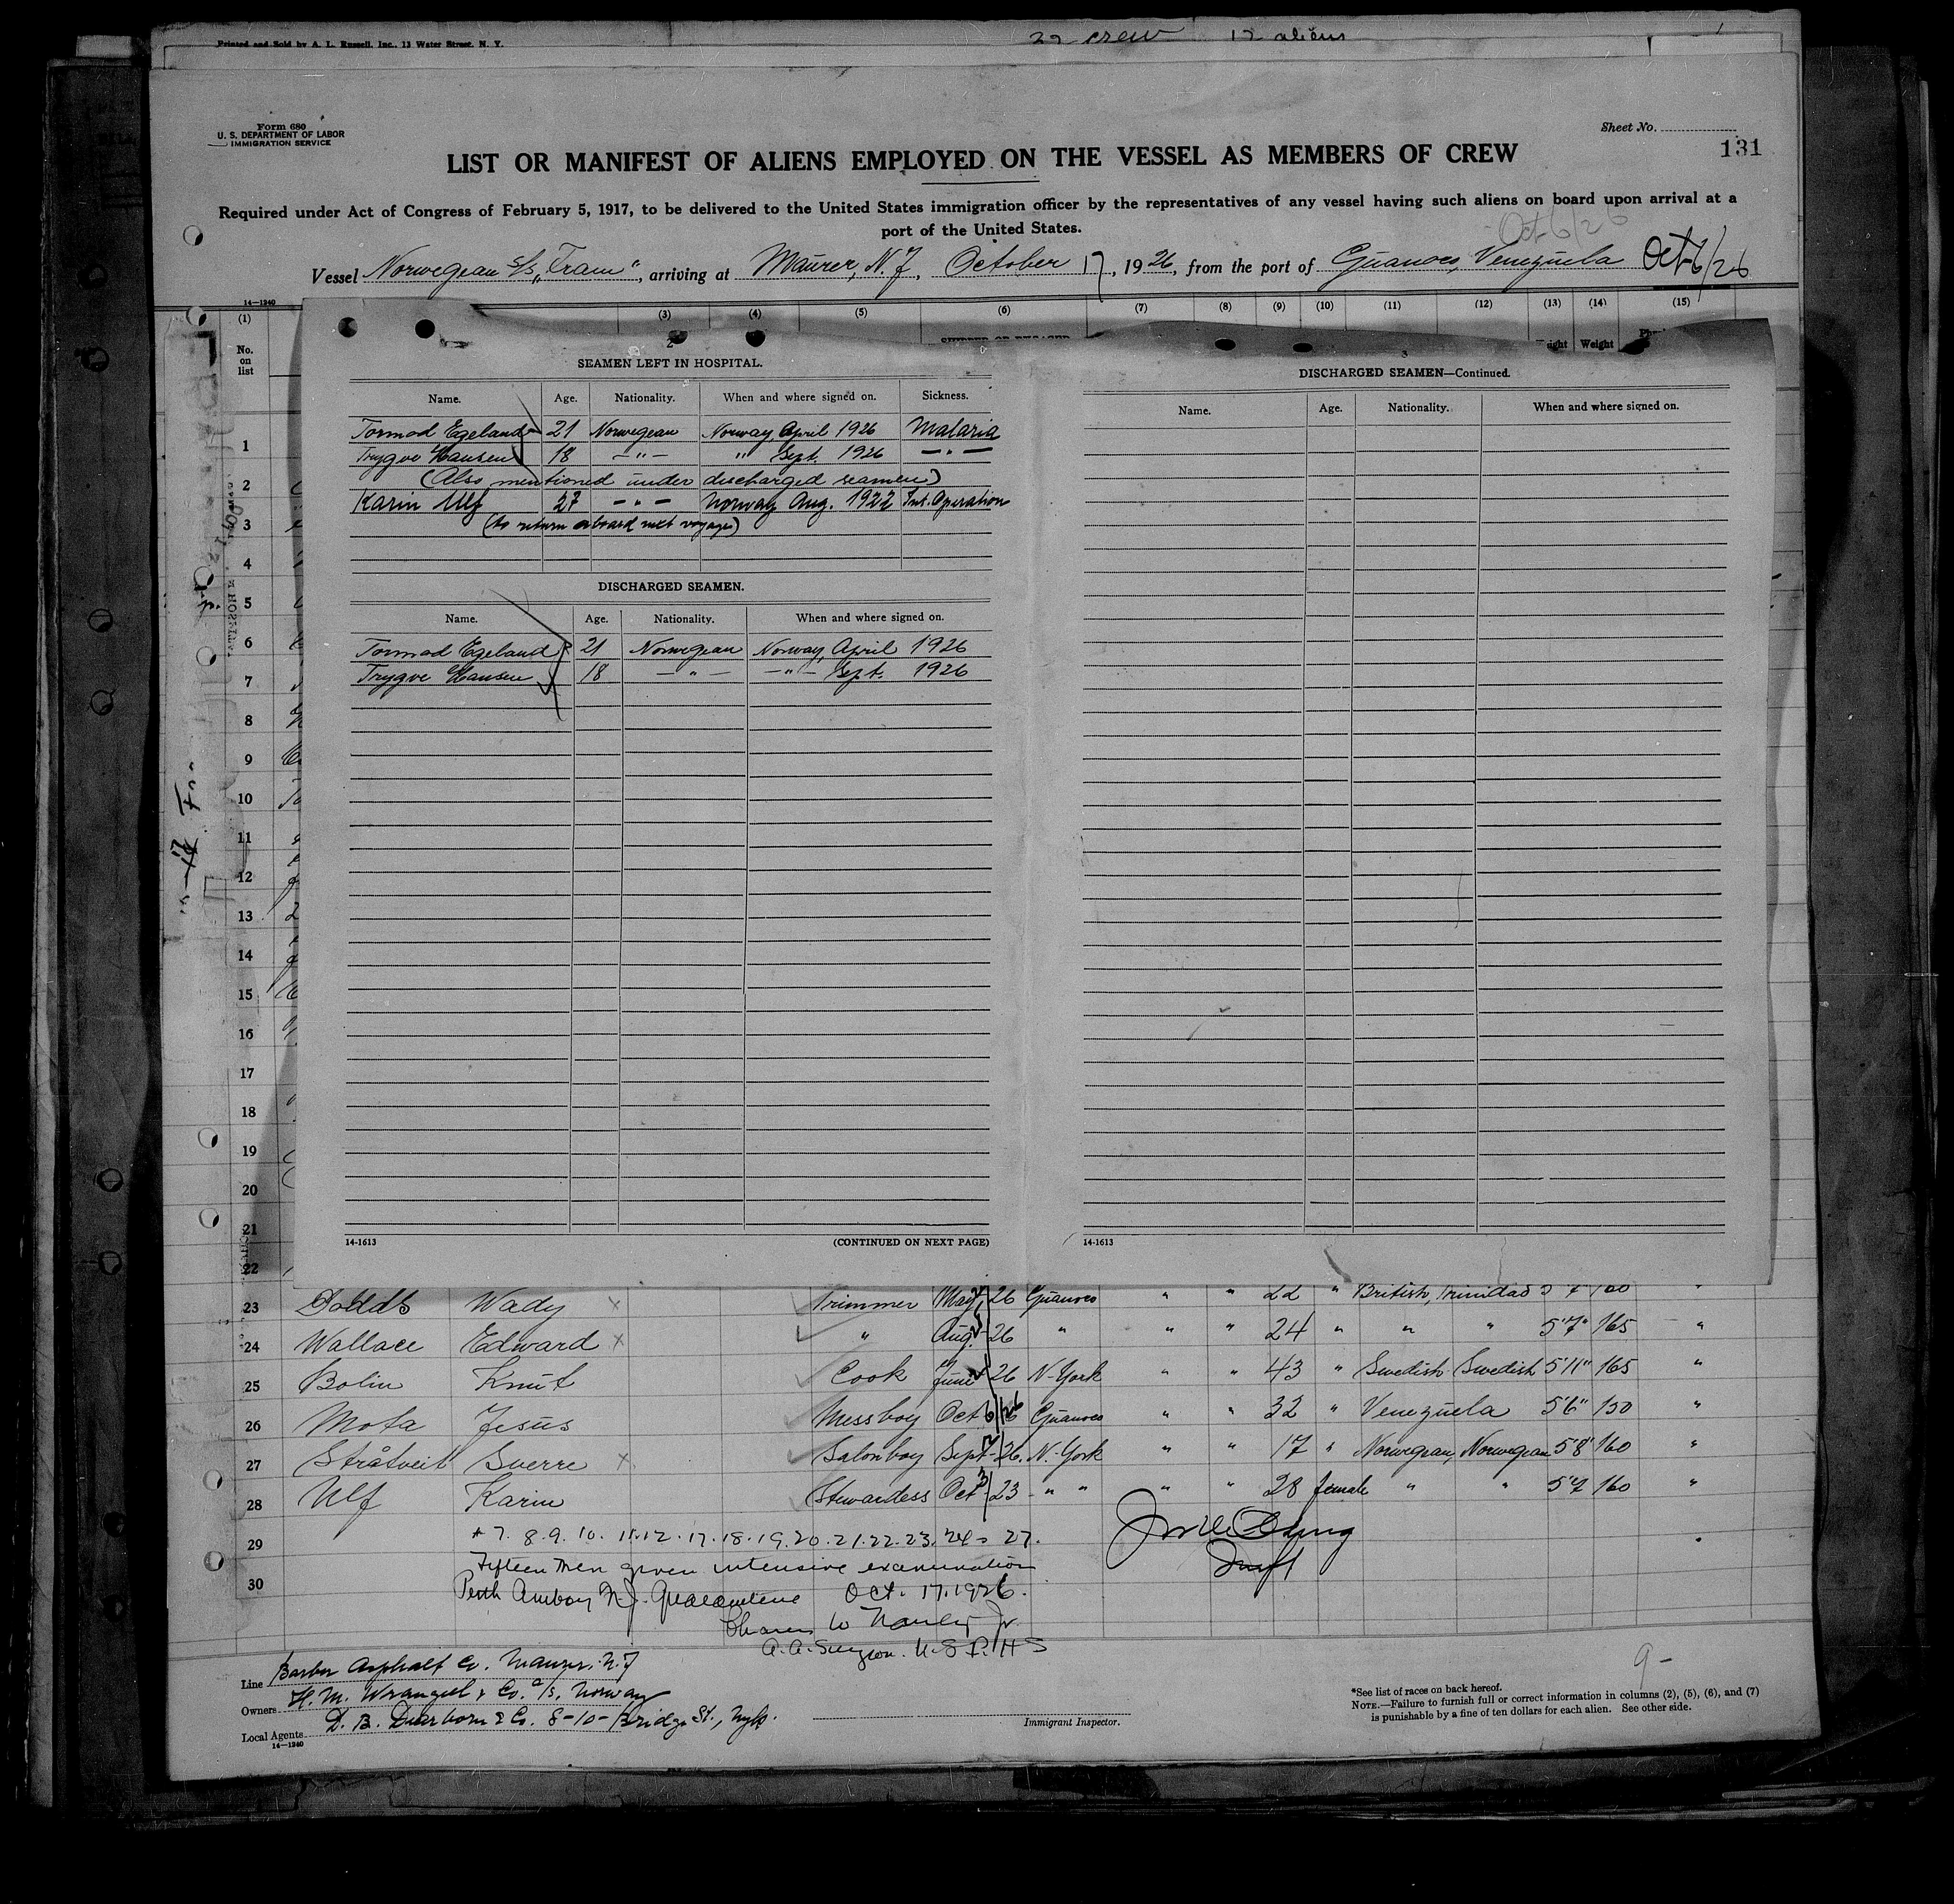 Printed and Sold by A. L. Russell, Inc., 13 Water Street, N. Y.
22 crew 12 aliens
Form 680
U. S. DEPARTMENT OF LABOR
IMMIGRATION SERVICE
Sheet No.
131
LIST OR MANIFEST OF ALIENS EMPLOYED ON THE VESSEL AS MEMBERS OF CREW
Required under Act of Congress of February 5, 1917, to be delivered to the United States immigration officer by the representatives of any vessel having such aliens on board upon arrival at a
port of the United States.
Oct 6/26
Vessel Norwegian S/S "Fram", arriving at Maurer, N.J., October 17, 1926, from the port of Guanoco, Venezuela Oct 6/26
14-1240
(1) (3) (4) (5) (6) (7) (8) (9) (10) (11) (12) (13) (14) (15)
No. on list
Weight
2
SEAMEN LEFT IN HOSPITAL.
Name. Age. Nationality. When and where signed on. Sickness.
Tormod Egeland 21 Norwegean Norway, April 1926 Malaria
Trygve Hansen 18 -"- " Sept. 1926 -"-
(Also mentioned under discharged seamen)
Karin Ulf 27 -"- Norway Aug. 1922 Int. Operation
(to return aboard next voyage)
DISCHARGED SEAMEN.
Name. Age. Nationality. When and where signed on.
Tormod Egeland 21 Norwegean Norway, April 1926
Trygve Hansen 18 -"- -"- Sept. 1926
14-1613 (CONTINUED ON NEXT PAGE)
3
DISCHARGED SEAMEN—Continued.
Name. Age. Nationality. When and where signed on.
14-1613
1
2
3
4
5
6
7
8
9
10
11
12
13
14
15
16
17
18
19
20
21
22
23 Dodds Wady x Trimmer May 26 Guanoco " " 22 " British, Trinidad
24 Wallace Edward x " Aug. 26 " " " 24 " " " 5'7" 165 "
25 Bolin Knut Cook June 26 N-York " " 43 " Swedish Swedish 5'11" 165 "
26 Mota Jesus Messboy Oct 6/26 Guanoco " " 32 " Venezuela 5'6" 150 "
27 Stråtveit Sverre x Salonboy Sept 26. N-York " " 17 " Norwegian, Norwegian 5'8" 160 "
28 Ulf Karin Stewardess Oct 3/23 " " " " 28 female " " 5'7 160 "
29 7. 8. 9. 10. 11. 12. 17. 18. 19. 20. 21. 22. 23. 24 27.
Fifteen men given intensive examination
30 Perth Amboy N.J. Quarantine Oct. 17. 1926.
A. A. Surgeon. U.S.P.H.S
Line Barber Asphalt Co. Maurer, N.J
Owners H. M. Wrangell & Co. a/s, Norway
Local Agents D. B. Dearborn & Co. 8-10-Bridge St., Nyk.
14-1240
Immigrant Inspector.
9-
*See list of races on back hereof.
NOTE.—Failure to furnish full or correct information in columns (2), (5), (6), and (7)
is punishable by a fine of ten dollars for each alien. See other side.